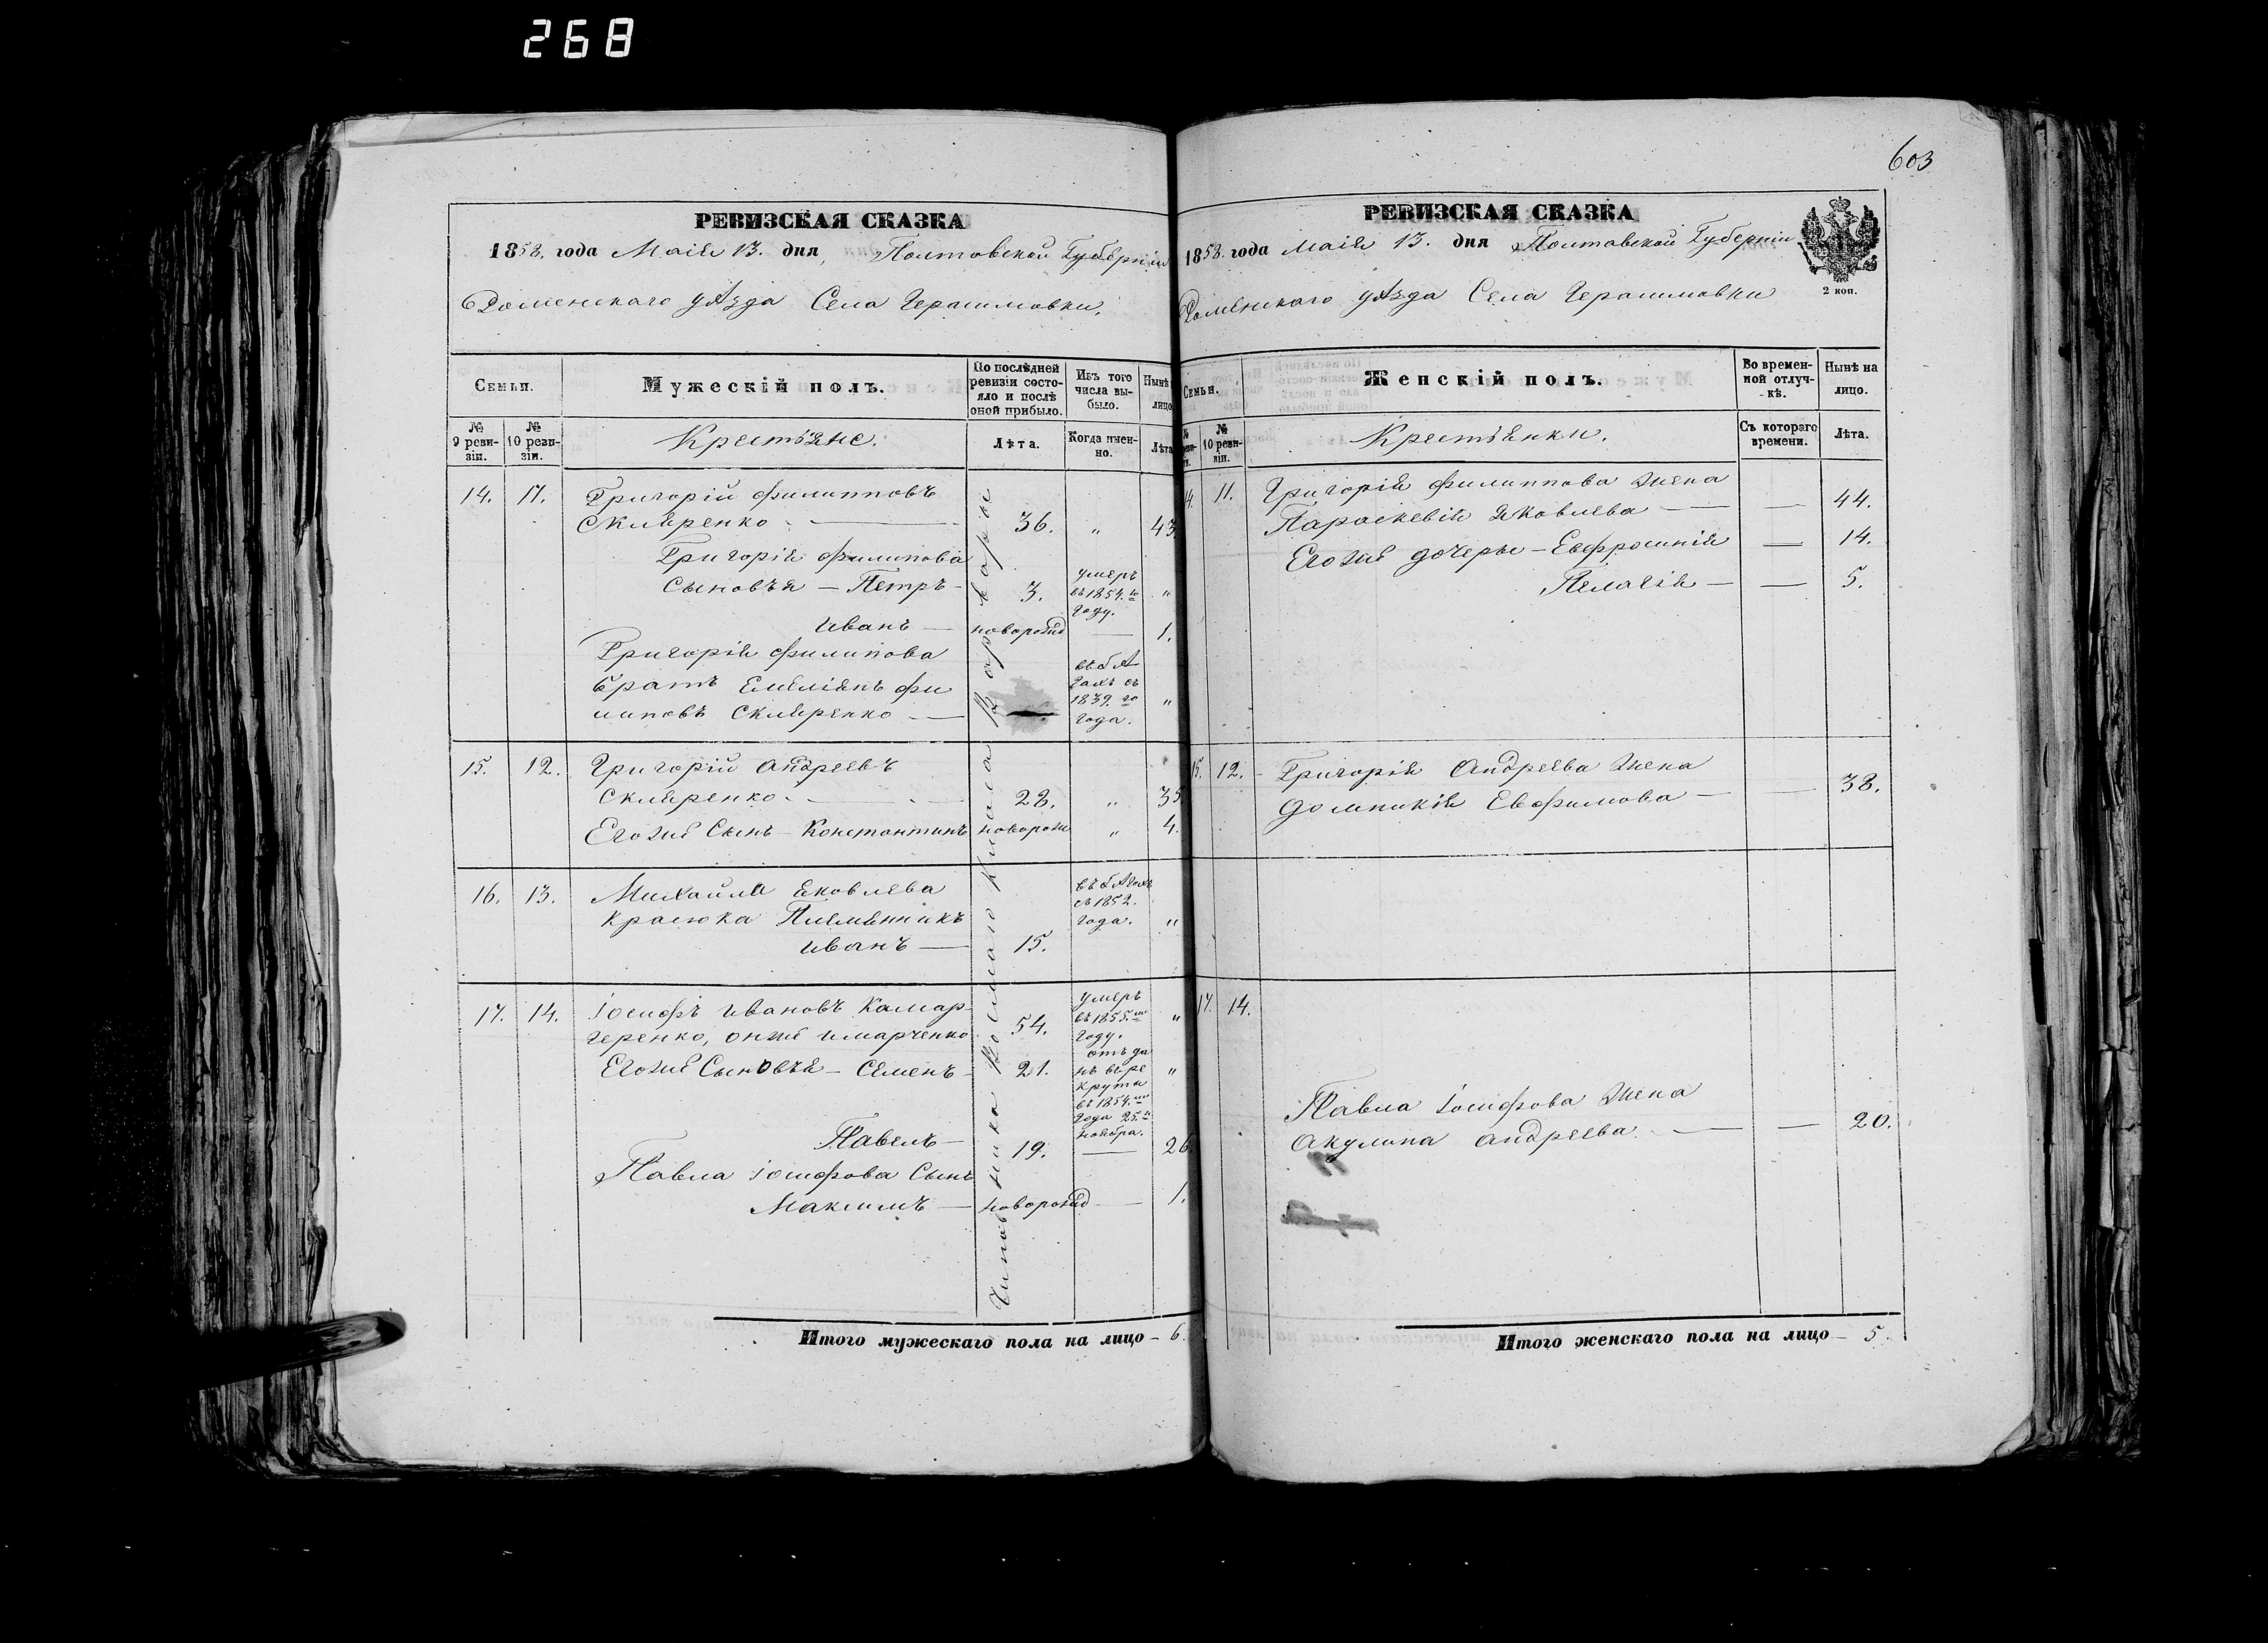 268
РЕВИЗСКАЯ СКАЗКА
1858. года Маія 13. дня, Полтавской Губерніи
Роменскаго уѣзда Села Герасимовки,
Семьи.
Мужескій полъ.
По послѣдней ревизіи состояло и послѣ оной прибыло.
Изъ того числа выбыло.
Нынѣ лицо
№ 9 ревизіи.
№ 10 ревизіи.
Крестьяне.
Лѣта.
Когда именно.
Лѣта
14. 11. Григорій Филипповъ
Скляренко 36. „ 43
Григорія Филипова
Сыновья — Петръ — 3. умеръ въ 1854.м году. „
Иванъ — новорожд — 1.
Григорія Филипова
братъ Емеліянъ Фи
липовъ Скляренко — въ бѣгахъ съ 1839.го года. „
15. 12. Григорій Андреевъ
Скляренко. — 28. „ 35
Егоже Сынъ — Константинъ новорож „ 4.
16. 13. Михайла Яковлева
Красюка Племянникъ
Иванъ — 15. въ бѣгахъ съ 1852. года. „
17. 14. Іосифъ Ивановъ Камар
ченко, онже 54. умеръ въ 1855.м году. „
Егоже Сыновья — Семенъ — 21. отъ да нъ въ ре круты въ 1854.м года 25.го ноября. „
Павелъ — 19. — 26
Павла Іосифова Сынъ
Максимъ — новорожд — 1.
Итого мужескаго пола на лицо — 6.
603
РЕВИЗСКАЯ СКАЗКА
1858. года Маія 13. дня Полтавской Губерніи
2 коп.
Роменскаго уѣзда Села Герасимовки
Семьи.
Женскій полъ.
Во временной отлучкѣ.
Нынѣ на лицо.
№ 10 ревизіи.
Крестьянки.
Съ котораго времени.
Лѣта.
14. 11. Григорія Филиппова жена
Параскевія Яковлева — — 44.
Егоже дочеры — Евфросинія — 14.
Пелагія — — 5.
15. 12. Григорія Андреева жена
Домникія Евфимова — — 38.
17. 14.
Павла Іосифова жена
Акулина Андреева. — — 20.
Итого женскаго пола на лицо — 5.